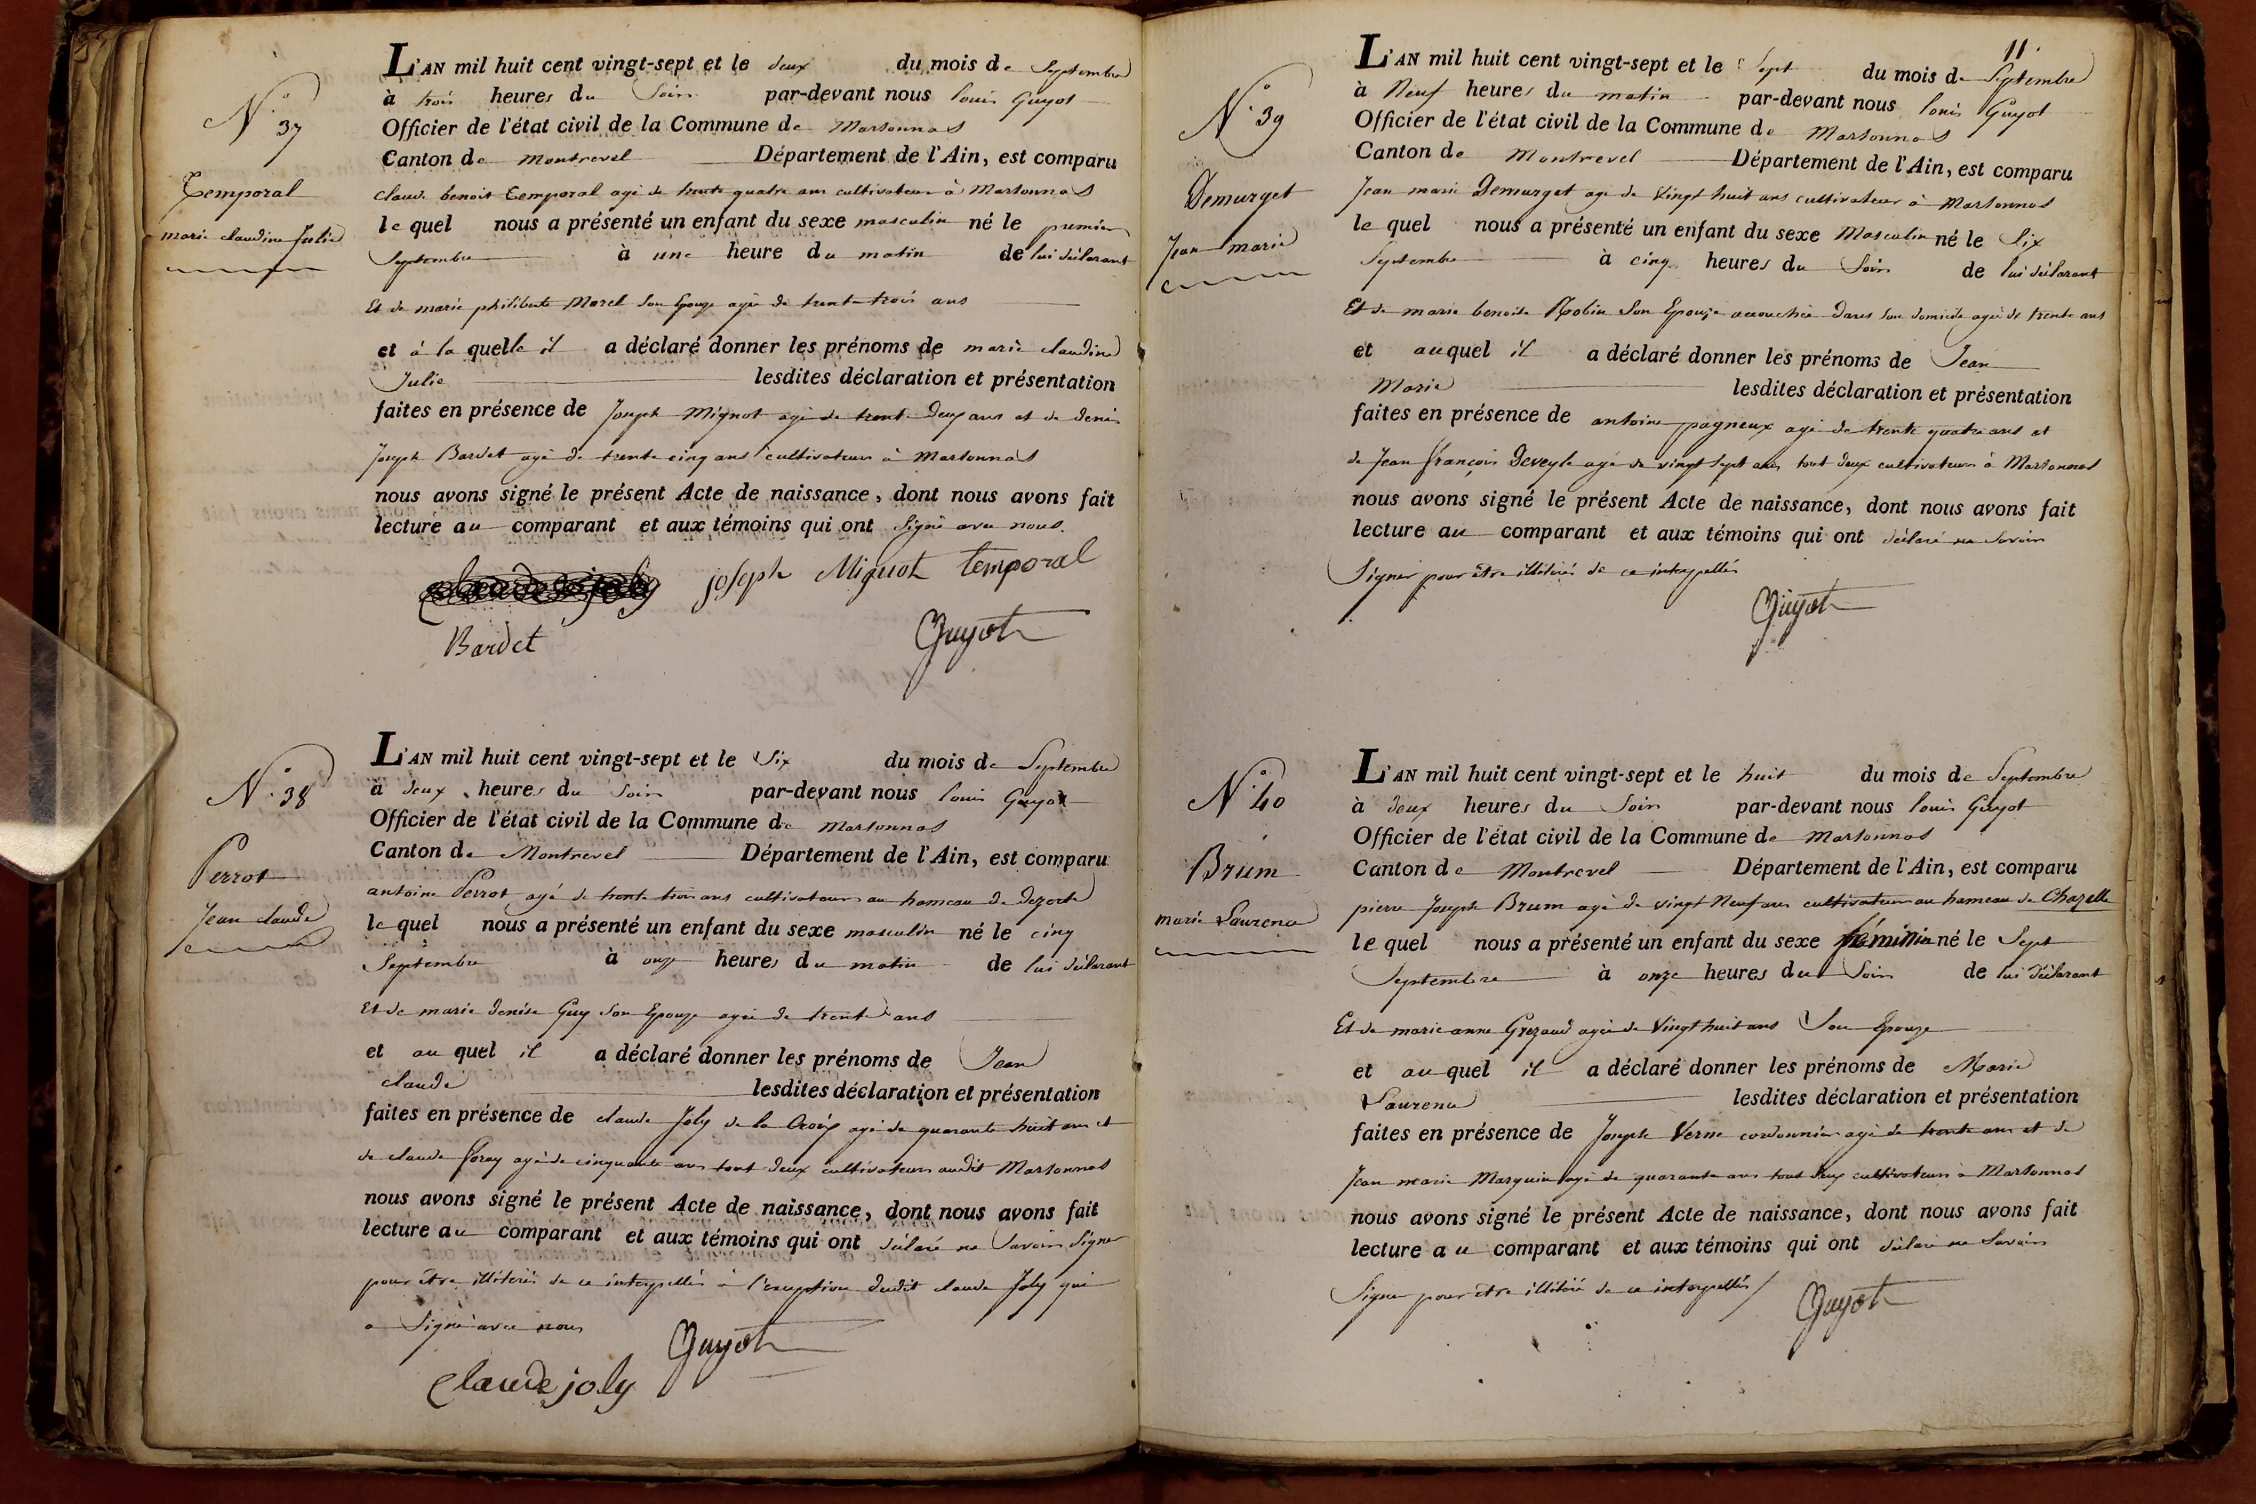 N.° 37
Temporal
marie claudine Julie
L'AN mil huit cent vingt-sept et le deux du mois de Septembre
à trois heures du Soir par-devant nous louis Guyot
Officier de l'état civil de la Commune de Marsonnas
Canton de Montrevel Département de l'Ain, est comparu
claude benoit Temporal agé de trente quatre ans cultivateur à Marsonnas
le quel nous a présenté un enfant du sexe masculin né le premier
Septembre à une heure du matin de lui déclarant
Et de marie philiberte Morel Son Epouze agée de trente trois ans
et à la quelle il a déclaré donner les prénoms de marie claudine
Julie lesdites déclaration et présentation
faites en présence de Joseph Mignot agé de trente Deux ans et de denis
Joseph Bardet agé de trente cinq ans cultivateurs à Marsonnas
nous avons signé le présent Acte de naissance, dont nous avons fait
lecture au comparant et aux témoins qui ont Signé avec nous.
joseph Mignot temporal
Bardet Guyot
N.° 38
Perrot
Jean claude
L'AN mil huit cent vingt-sept et le Six du mois de Septembre
à deux heures du Soir par-devant nous louis Guyot
Officier de l'état civil de la Commune de Marsonnas
Canton de Montrevel Département de l'Ain, est comparu
antoine Perrot agé de trente trois ans cultivateur au hameau de Dezorte
le quel nous a présenté un enfant du sexe masculin né le cinq
Septembre à onze heures du matin de lui déclarant
Et de marie denise Guy Son Epouze agée de trente ans
et au quel il a déclaré donner les prénoms de Jean
claude lesdites déclaration et présentation
faites en présence de claude Joly de la Croix agé de quarante huit ans et
de claude foray agé de cinquante ans tout deux cultivateurs audit Marsonnas
nous avons signé le présent Acte de naissance, dont nous avons fait
lecture au comparant et aux témoins qui ont déclaré ne Savoir Signer
pour être illitérés de ce interpellés à l'exception dudit claude Joly qui
a Signé avec nous
Guyot
claude joly
11.
N.° 39
Demurget
Jean marie
L'AN mil huit cent vingt-sept et le Sept du mois de Septembre
à Neuf heures du matin par-devant nous louis Guyot
Officier de l'état civil de la Commune de Marsonnas
Canton de Montrevel Département de l'Ain, est comparu
Jean marie Demurget agé de Vingt huit ans cultivateur à Marsonnas
le quel nous a présenté un enfant du sexe Masculin né le Six
Septembre à cinq heures du Soir de lui déclarant
Et de marie benoite Robin Son Epouze accouchée dans Son domicile agée de trente ans
et au quel il a déclaré donner les prénoms de Jean
Marie lesdites déclaration et présentation
faites en présence de antoine pagneux agé de trente quatre ans et
de Jean françois Deveyle agé de vingt Sept ans tout deux cultivateurs à Marsonnas
nous avons signé le présent Acte de naissance, dont nous avons fait
lecture au comparant et aux témoins qui ont déclaré ne Savoir
Signer pour être illitérés de ce interpellés
Guyot
N.° 40
Brum
marie Laurence
L'AN mil huit cent vingt-sept et le huit du mois de Septembre
à deux heures du Soir par-devant nous louis Guyot
Officier de l'état civil de la Commune de Marsonnas
Canton de Montrevel Département de l'Ain, est comparu
pierre Joseph Brum agé de vingt Neuf ans cultivateur au hameau de Chazelle
le quel nous a présenté un enfant du sexe féminin né le Sept
Septembre à onze heures du Soir de lui déclarant
Et de marie anne Grezaud agée de Vingt huit ans Son Epouze
et au quel il a déclaré donner les prénoms de Marie
Laurence lesdites déclaration et présentation
faites en présence de Joseph Verne cordonnier agé de trente ans et de
Jean marie Marguin agé de quarante ans tous deux cultivateurs à Marsonnas
nous avons signé le présent Acte de naissance, dont nous avons fait
lecture au comparant et aux témoins qui ont déclaré ne Savoir
Signer pour être illitéré de ce interpellés
Guyot